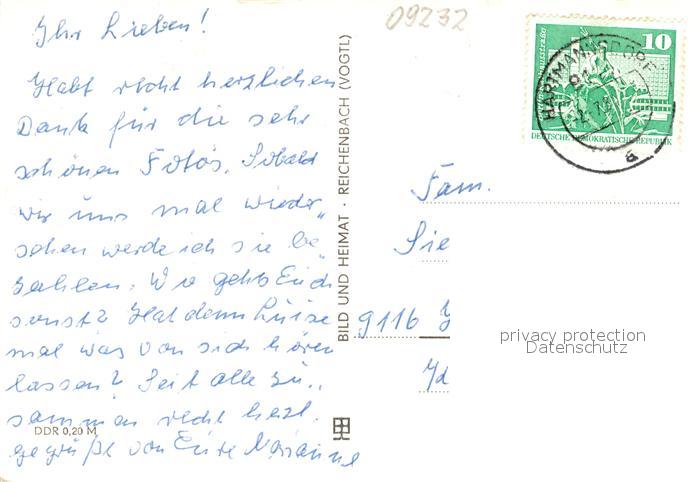 09232
Ihr Lieben!
Habt recht herzlichen
Dank für die sehr
schönen Fotos. Sobald
wir uns mal wieder„
sehen werde ich sie be„
zahlen. Wie gehts Euch
sonst? Hat denn Luise
mal was von sich hören
lassen? Seit alle zu„
sammen recht herzl.
gegrüßt von Eure Marianne
DDR 0,20 M
BILD UND HEIMAT · REICHENBACH (VOGTL)
10
DEUTSCHE DEMOKRATISCHE REPUBLIK
HARTMANNSDORF
a
Fam.
Sie
9116
privacy protection
Datenschutz